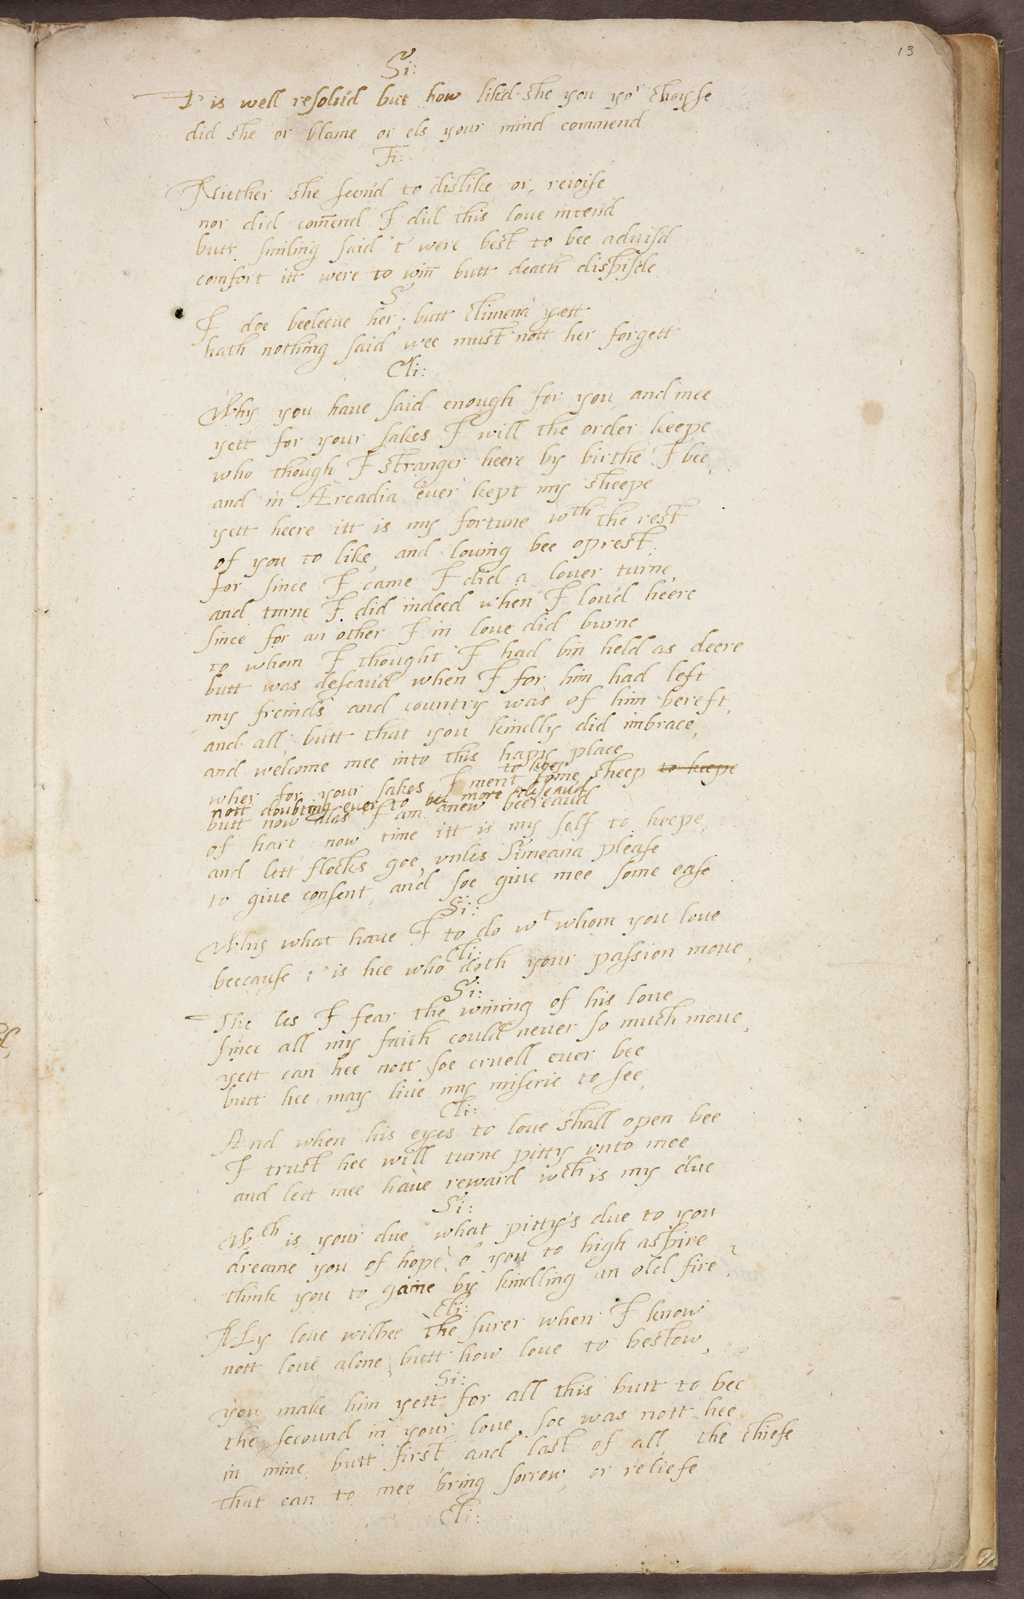 13
Si:
T' is well resolu'd but how lik'd she you yor choyse
did she or blame or els your mind commend
Fi:
Niether she seem'd to dislike or, reioise
nor did com̃end I did this loue intend
butt smiling said 't were best to bee aduis'd
comfort itt were to win̄ butt death dispis'de
Si
I doe beeleeue her; butt Climena yett
hath nothing said wee must nott her forgett
Cli:
Why you have said enough for you, and mee
yett for your sakes I will the order keepe
who though I stranger heere by birthe I bee,
and in Arcadia ever kept my sheepe
yett heere itt is my fortune wth the rest
of you to like, and louing bee oprest;
for since I came I did a louer turne,
and turne I did indeed when I lou'd heere
since for an other I in loue did burne
to whom I thought I had bin held as deere
butt was deseau'd when I for him had left
my freinds and country was of him bereft,
and all, butt that you kindly did imbrace,
and welcome mee into this happy place
to keep
wher for your sakes I ment some sheep to keepe
nott doubting euer to bee more deseaud
butt now alas I am anew beereaud
of hart now time itt is my self to keepe,
and lett flocks goe, vnles Simeana please
to giue consent, and soe giue mee some ease
Si:
Why what haue I to do wt whom you loue
Cli:
beecause t' is hee who doth your passion moue,
Si:
The les I fear the wining of his loue
since all my faith could never so much moue,
yett can hee nott soe cruell euer bee
butt hee may liue my miserie to see,
Cli:
And when his eyes to loue shall open bee
I trust hee will turne pitty vnto mee
and lett mee haue reward wch is my due
Si:
Wch is your due, what pitty's due to you
dreame you of hope, o' you to high aspire
think you to gaine by kindling an old fire?
Cli:
My loue wilbee the surer when I know
nott loue alone, butt how loue to bestow,
Si:
you make him yett for all this butt to bee
the secound in your loue, soe was nott hee
in mine, butt first and last of all, the chiefe
that can to mee bring sorrow, or reliefe
Cli: